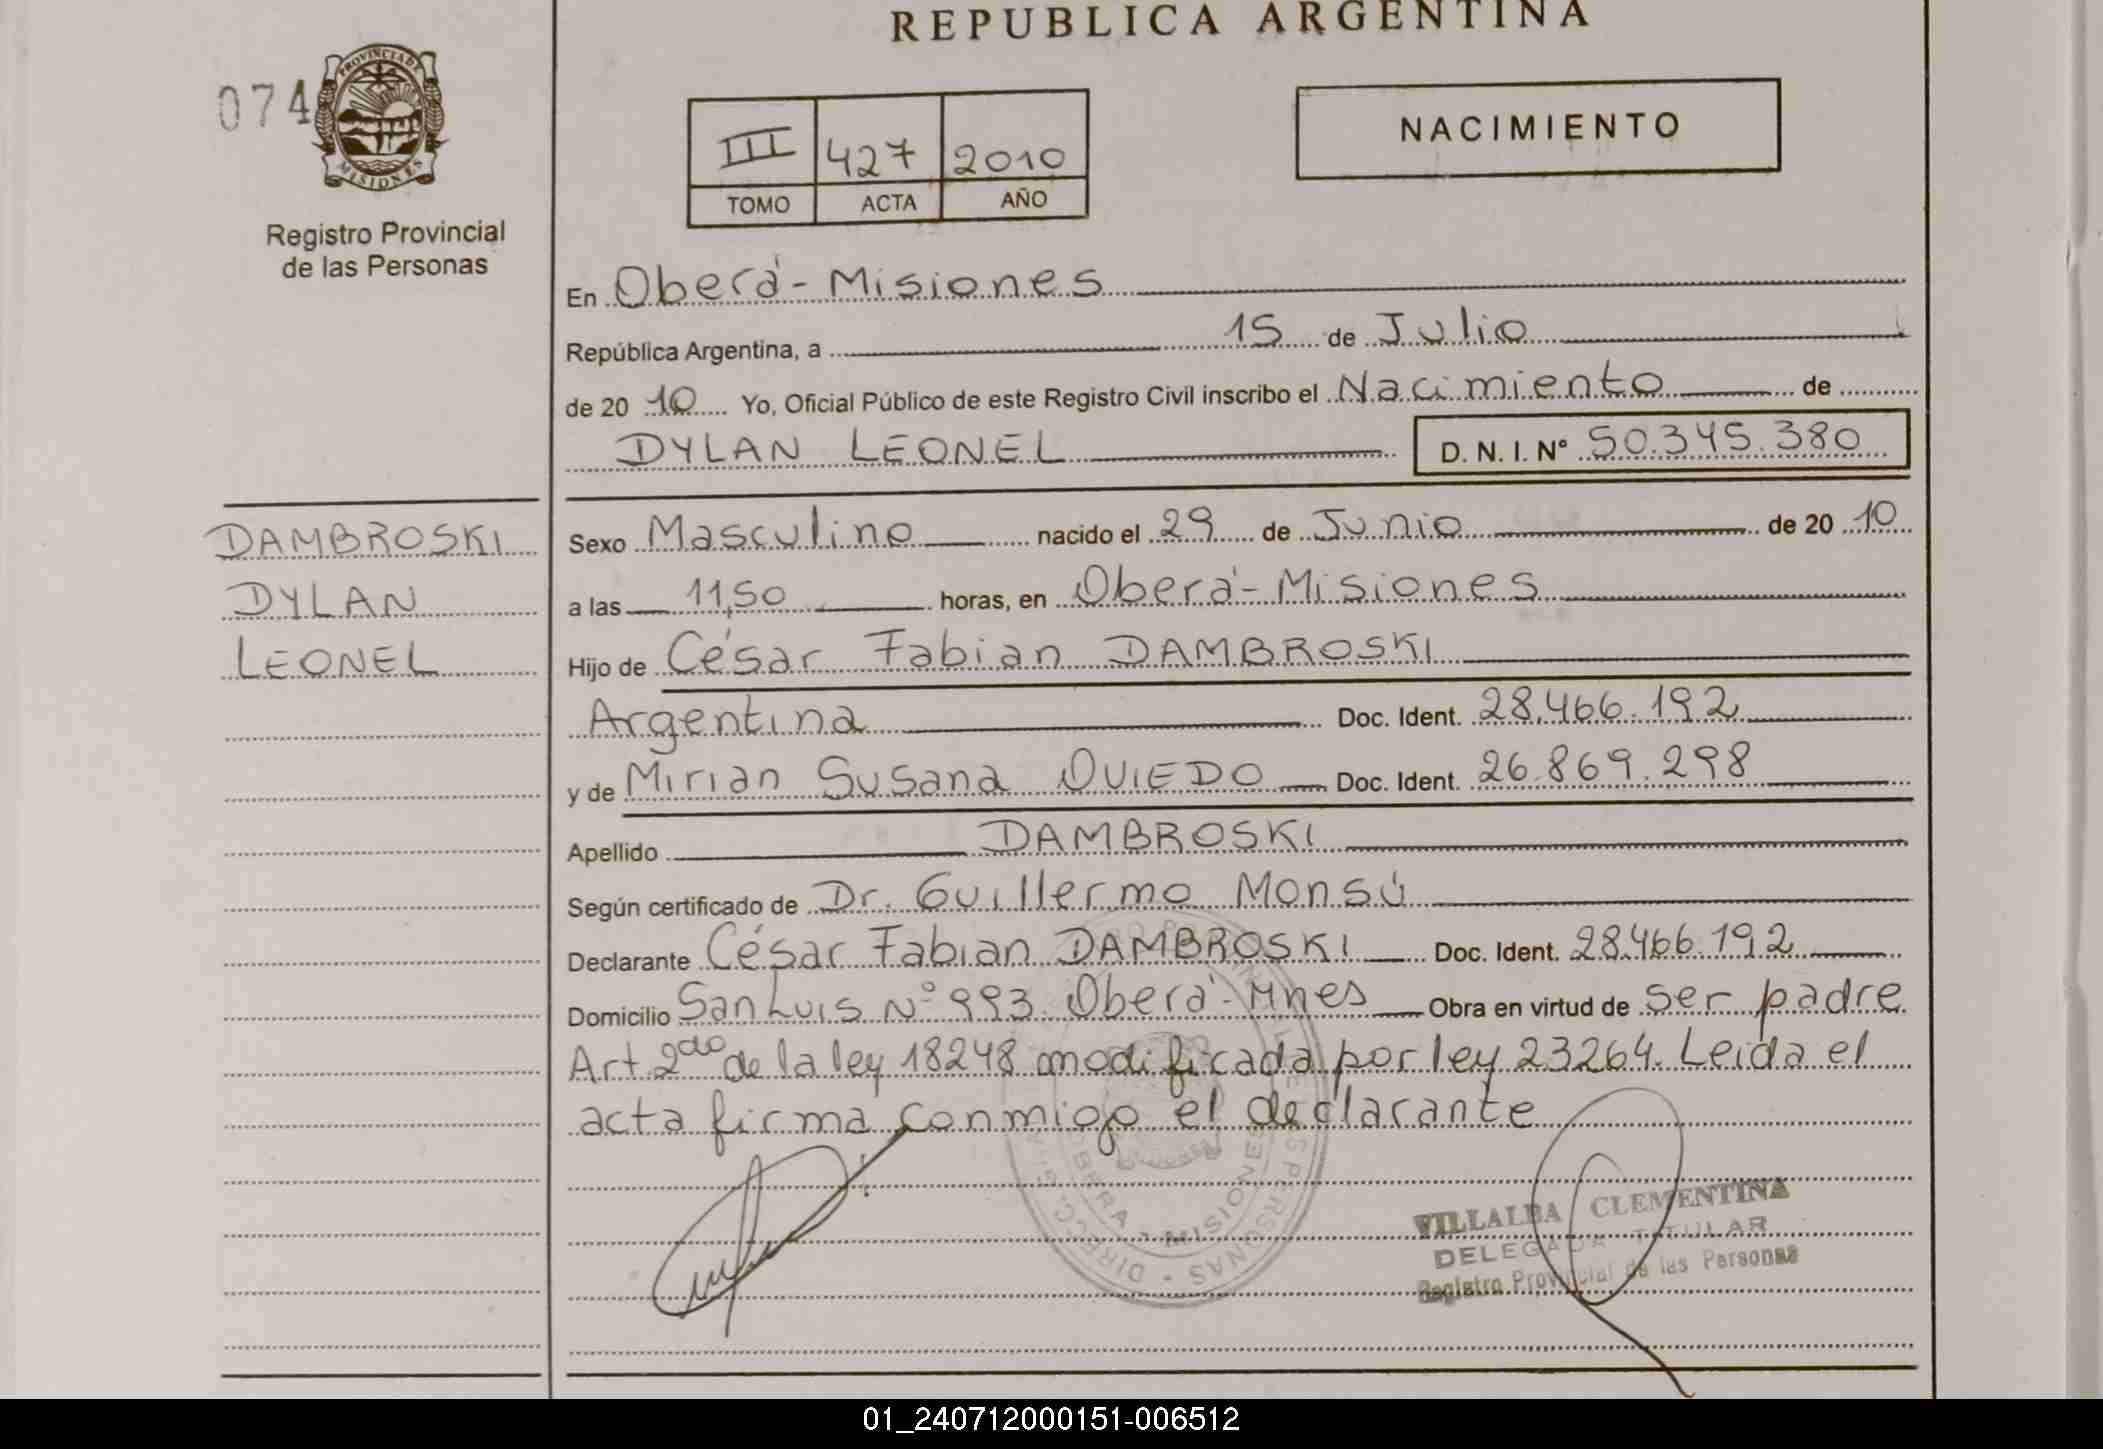 REPUBLICA ARGENTINA
074
PROVINCIA DE
MISIONES
Registro Provincial
de las Personas
III 427 2010
TOMO ACTA AÑO
NACIMIENTO
En Oberá - Misiones
República Argentina, a 15 de Julio
de 20 10 Yo, Oficial Público de este Registro Civil inscribo el Nacimiento de
DYLAN LEONEL D. N. I. Nº 50.345.380
DAMBROSKI
DYLAN
LEONEL
Sexo Masculino nacido el 29 de Junio de 20 10
a las 11,50 horas, en Oberá - Misiones
Hijo de César Fabian DAMBROSKI
Argentina Doc. Ident. 28.466.192
y de Mirian Susana OVIEDO Doc. Ident. 26.869.298
Apellido DAMBROSKI
Según certificado de Dr. Guillermo Monsú
Declarante César Fabian DAMBROSKI Doc. Ident. 28.466.192
Domicilio San Luis Nº 993 Oberá - Mnes Obra en virtud de ser padre
Art. 2do de la ley 18248 modificada por ley 23264. Leida el
acta firma conmigo el declarante
OBERA - MISIONES
VILLALBA CLEMENTINA
DELEGADA TITULAR
Registro Provincial de las Personas
01_240712000151-006512